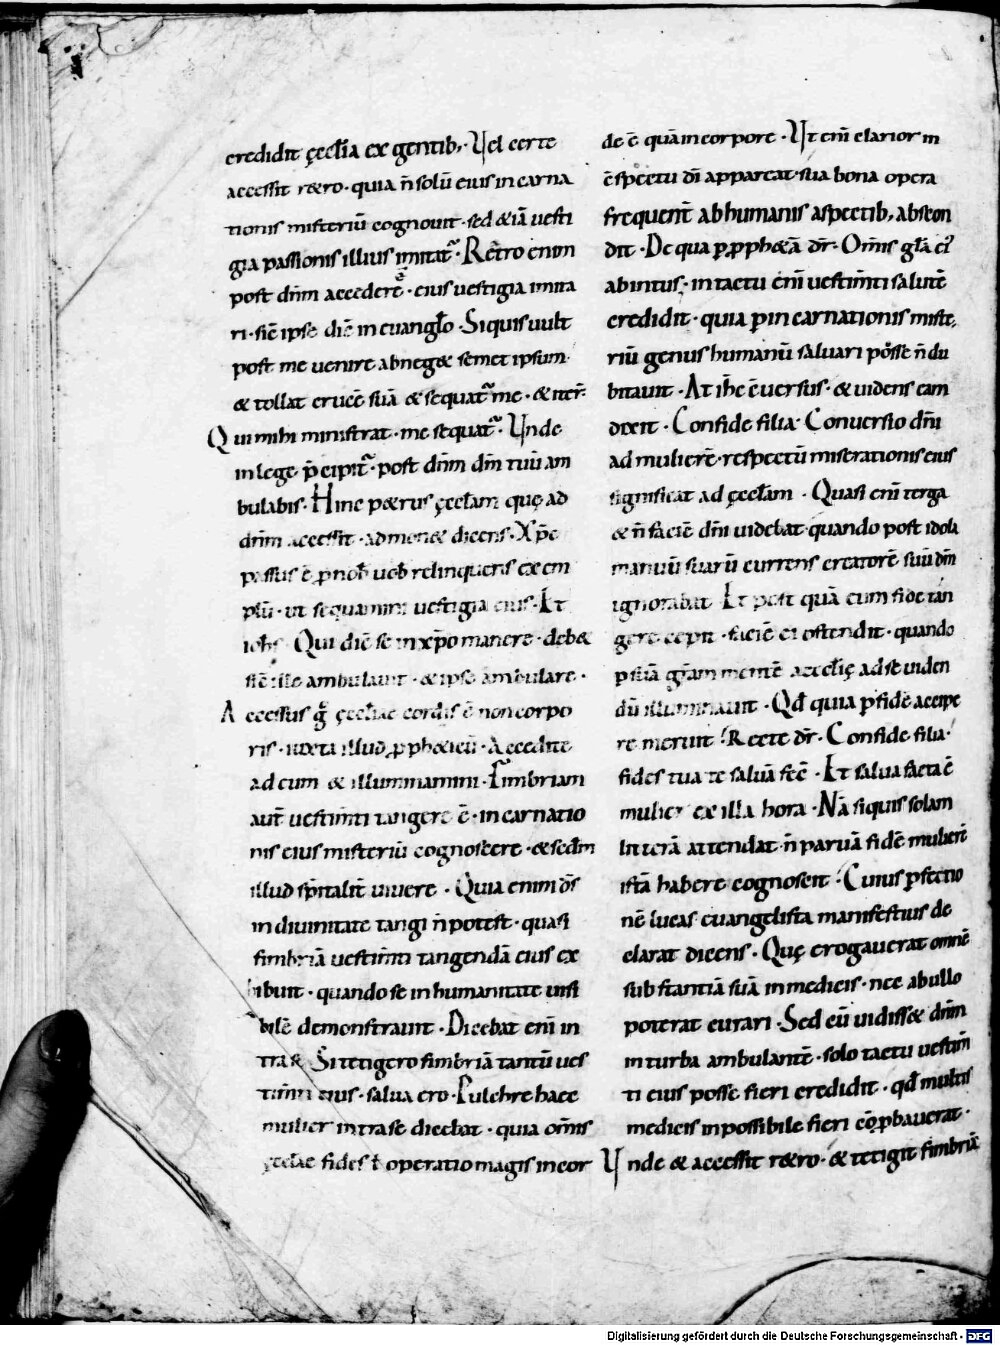 credidit ęcclīa ex gentib;. Vel certe
accessit retro. quia n̄ solū eius incarna
tionis misteriū cognouit. sed & iā uesti
gia passionis illius imitat᷑. Retro enim
post dn̄m accedere. ē eius uestigia imita
ri. sic̄ ipse dic̄ in euanglo. Siquis uult
post me uenire abneg& semet ipsum.
& tollat crucē suā & sequat᷑ me. & iter̄.
Qui mihi ministrat. me sequat᷑. Vnde
in lege p̄cipit᷑. post dn̄m dm̄ tuū am
bulabis. Hinc petrus ęcclam quę ad
dn̄m accessit. admon& dicens. Xp̄c
passus ē ꝓ nob̄ uob̄ relinquens exem
plū. ut sequamini uestigia eius. Et
ioh̄s. Qui dic̄ se in xp̄o manere. deb&
sic̄ ille ambulauit. & ipse ambulare.
Accessus g̊ ęccliae cordis ē non corpo
ris. iuxta illud ꝓph&icū. Accedite
ad eum & illuminamini. Fimbriam
aut̄ uestim̄ti tangere ē. incarnatio
nis eius misteriū cognoscere. & scd̄m
illud sp̄italit̄ uiuere. Quia enim d̄s
in diuinitate tangi n̄ potest. quasi
fimbriā uestim̄ti tangendā eius ex
hibuit. quando se in humanitate uisi
bilē demonstrauit. Dicebat eni̅ in
tra se. Si tetigero fimbriā tantū ues
tim̄ti eius. salua ero. Pulchre haec
mulier intra se dicebat. quia om̄is
ęcclae fides ł operatio magis in cor
de ē quā in corpore. Vt eni̅ clarior in
c̄spectu dī appareat. sua bona opera
frequent̄ ab humanis aspectib; abscon
dit. De qua p ꝓph&ā dr̄. Om̄is gl̄a ei᷒
ab intus. in tactu eni̅ uestim̄ti salutē
credidit. quia p incarnationis miste
riū genus humanū saluari posse n̄ du
bitauit. At ih̄c c̄uersus. & uidens eam
dixit. Confide filia. Conuersio dn̄i
ad mulierē. respectū miserationis eius
significat ad ęcclam. Quasi eni̅ terga
& n̄ faciē dn̄i uidebat. quando post idola
manuū suarū currens creatorē suū dm̄
ignorabat. Et post quā cum fide tan
gere cepit. faciē ei ostendit. quando
p suā gr̄am mentē ęcclię ad se uiden
dū illuminauit. Qd̄ quia p fidē accipe
re meruit. Recte dr̄. Confide filia.
fides tua te saluā fec̄. Et salua facta ē
mulier ex illa hora. Nā siquis solam
litterā attendat. n̄ paruā fidē mulierē
istā habere cognoscit. Cuius pfectio
nē lucas euangelista manifestius de
clarat dicens. Quę erogauerat omnē
substantiā suā in medicis. nec ab ullo
poterat curari. Sed cū uidiss& dn̄m
in turba ambulantē. solo tactu uestim̄
ti eius posse fieri credidit. qd̄ multis
medicis inpossibile fieri cōꝓbauerat.
Vnde & accessit retro. & tetigit fimbriā
Digitalisierung gefördert durch die Deutsche Forschungsgemeinschaft - DFG